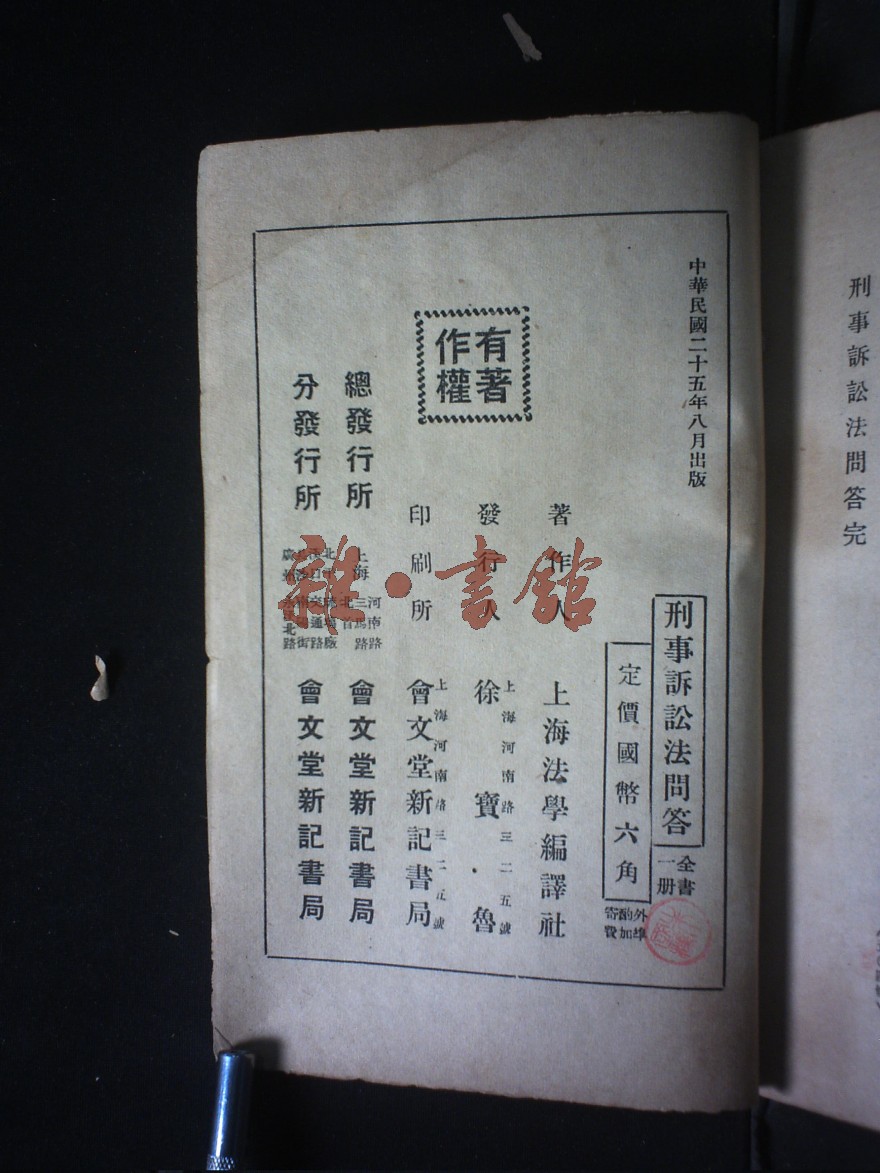 刑事訴訟法問答完
中華民國二十五年八月出版
刑事訴訟法問答
全書
一册
定價國幣六角
外埠
酌加
寄費
著作人
上海法學編譯社
發行人
上海河南路三二五號
徐寶魯
有著
作權
印刷所
上海河南路三二五號
會文堂新記書局
總發行所
上海
河南路
三馬路
北首
會文堂新記書局
分發行所
會文堂新記書局
雜·書館